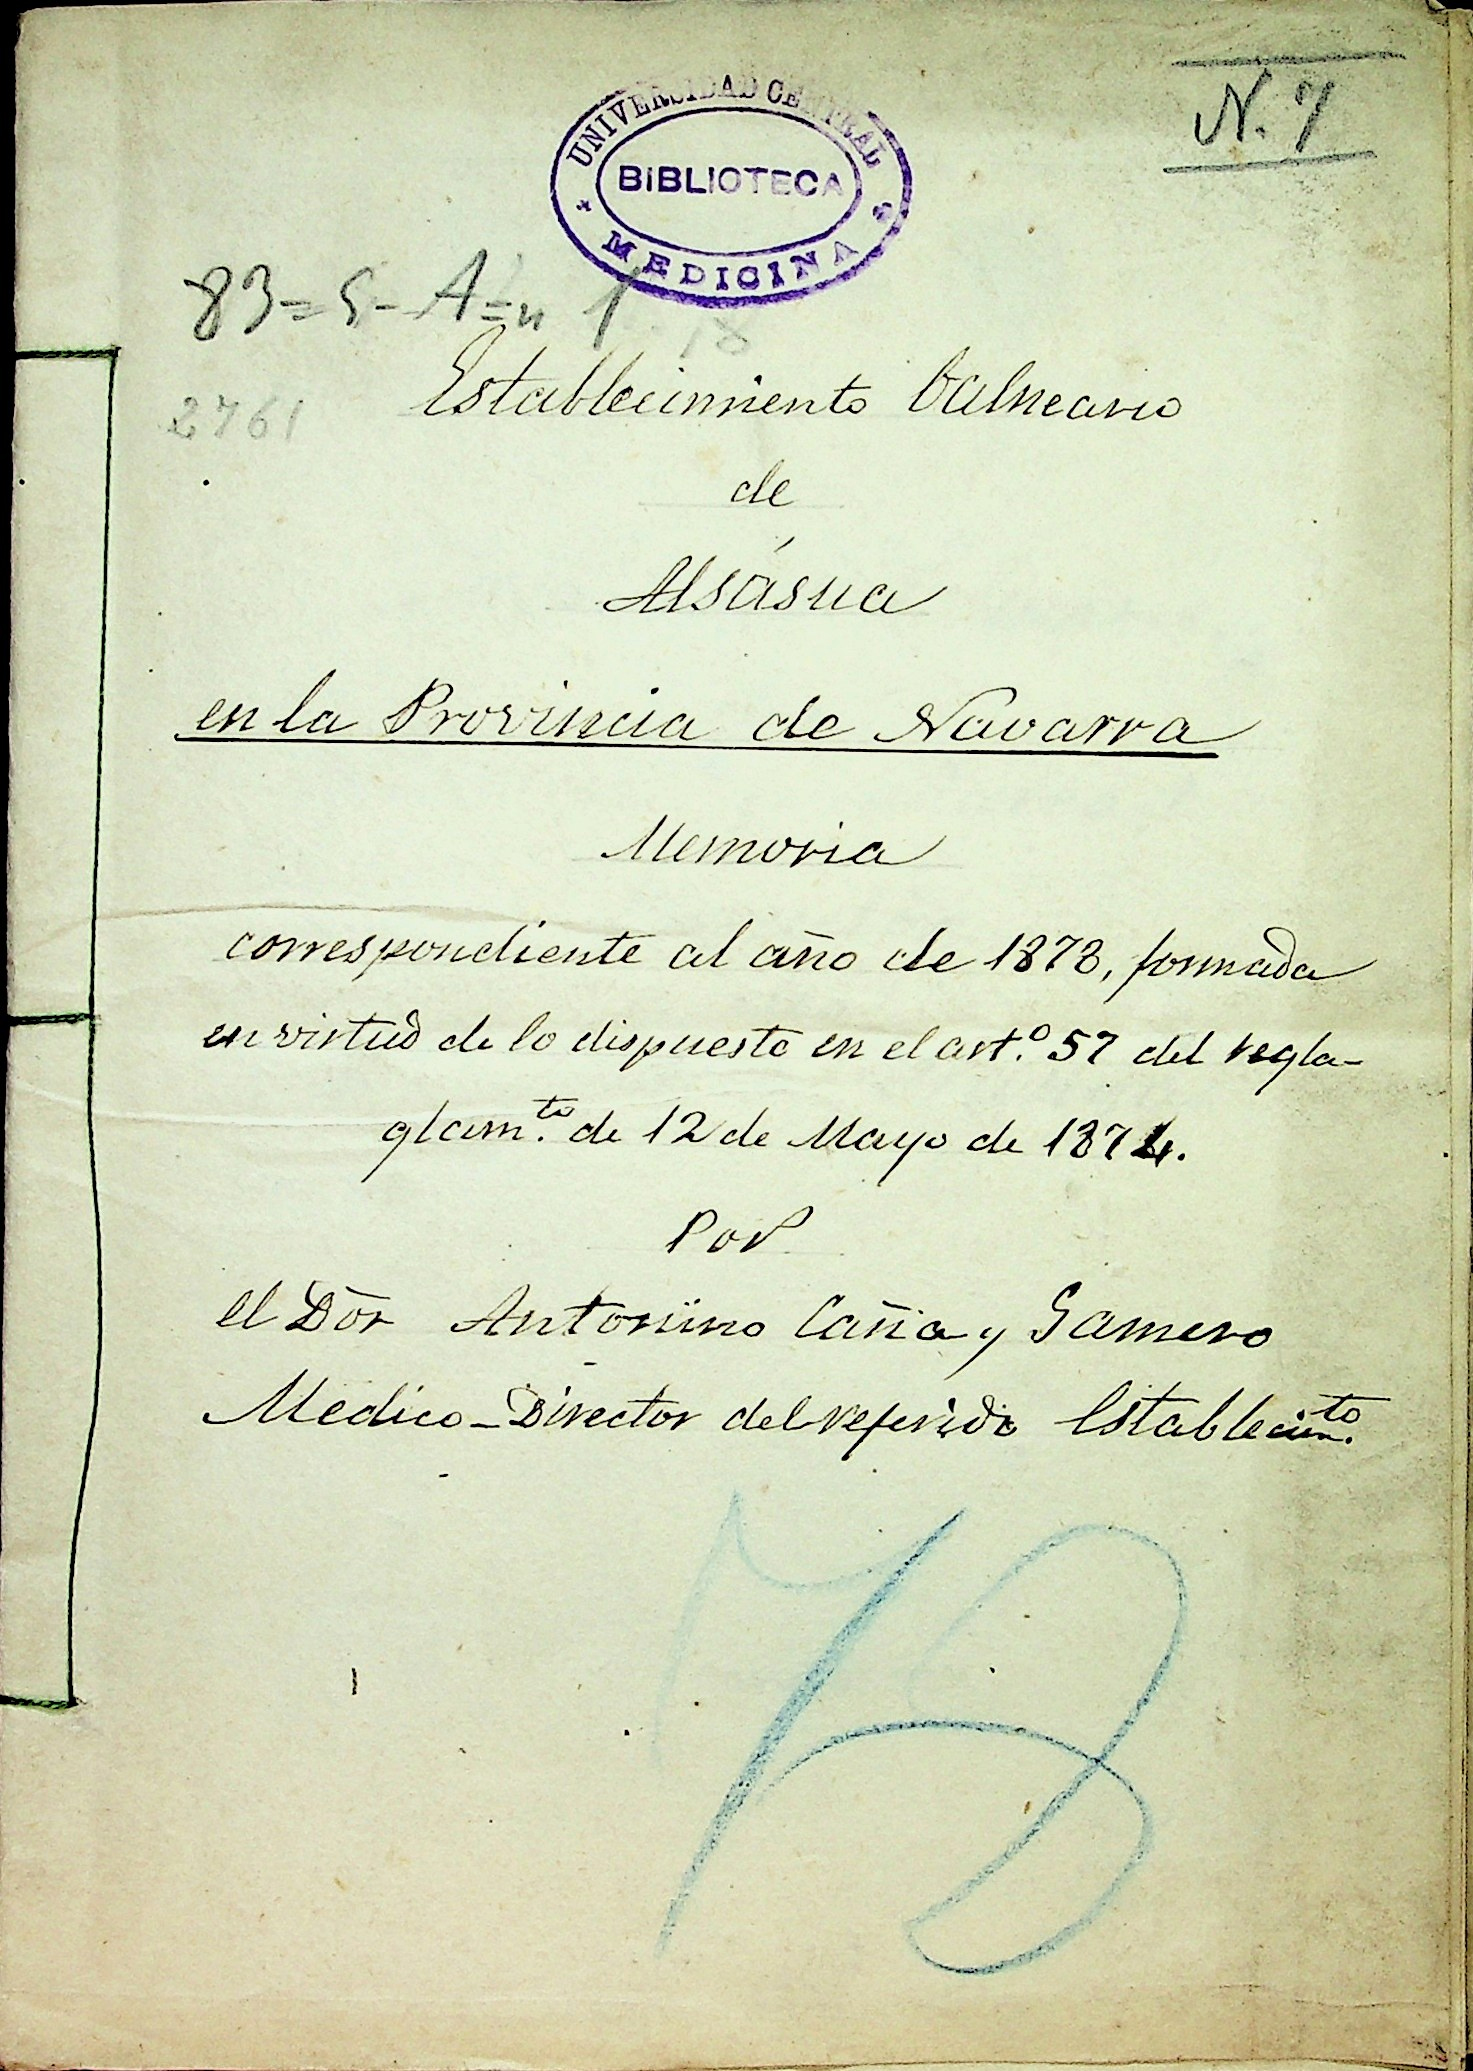 N. 7
UNIVERSIDAD CENTRAL
BIBLIOTECA
MEDICINA
83=5-A=n 1
18
2761
Establecimiento balneario
de
Alsásua
en la Provincia de Navarra
Memoria
correspondiente al año de 1878, formada
en virtud de lo dispuesto en el art.º 57 del regla-
glam.to de 12 de Mayo de 1874.
Por
el Dōr Antonino Caña y Gamero
Medico-Director del referido Establecim.to
73